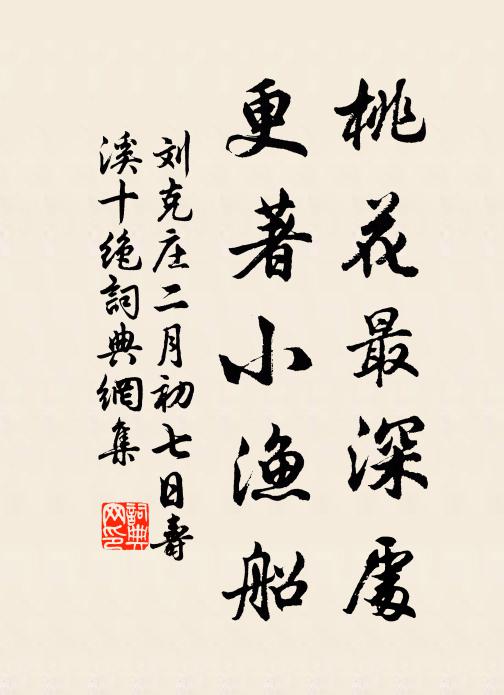 桃花最深處
更著小漁船
刘克庄二月初七日壽
溪十絶詞典網集
詞典网印